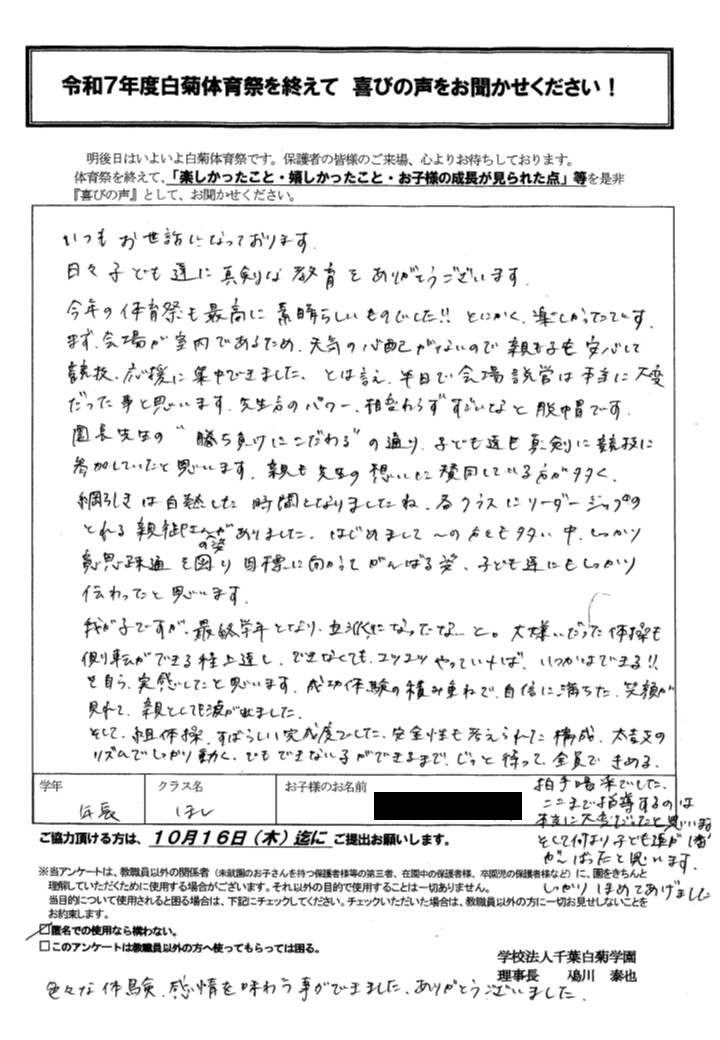 令和7年度白菊体育祭を終えて 喜びの声をお聞かせください！
明後日はいよいよ白菊体育祭です。保護者の皆様のご来場、心よりお待ちしております。
体育祭を終えて、「楽しかったこと・嬉しかったこと・お子様の成長が見られた点」等を是非
『喜びの声』として、お聞かせください。
いつもお世話になっております。
日々子ども達に真剣な教育をありがとうございます。
今年の体育祭も最高に素晴らしいものでした!! とにかく、楽しかったです。
まず、会場が室内であるため、天気の心配がないので親も子も安心して
競技、応援に集中できました。とは言え、半日で会場設営は本当に大変
だった事と思います。先生方のパワー、相変わらずすごいなと脱帽です。
園長先生の“勝ち負けにこだわる”の通り、子ども達も真剣に競技に
参加していたと思います。親も先生の想いに賛同している方が多く、
綱引きは白熱した時間となりましたね。各クラスにリーダーシップの
とれる親御さんがありました。はじめまして〜の方も多い中、しっかり
の姿
意思疎通を図り目標に向かってがんばる姿、子ども達にもしっかり
伝わったと思います。
我が子ですが、最終学年となり、立派になったな…と。大嫌いだった体操も
側転ができる程上達し、できなくても、コツコツやっていけば、いつかはできる!!
を自ら、実感したと思います。成功体験の積み重ねで、自信に満ちた、笑顔が
見れて、親としても涙が出ました。
そして、組体操、すばらしい完成度でした。安全性も考えられた構成、太鼓の
リズムでしっかり動く、ひもできない子ができるまで、じっと待って、全員できめる。
拍手喝采でした。
ここまで指導するのは
本当に大変だったと思います
そして何より子ども達が1番
がんばったと思います。
しっかりほめてあげました
学年 クラス名 お子様のお名前
年長 ほし
ご協力頂ける方は、10月16日（木）迄に ご提出お願いします。
※当アンケートは、教職員以外の関係者（未就園のお子さんを持つ保護者様等の第三者、在園中の保護者様、卒園児の保護者様など）に、園をきちんと
理解していただくために使用する場合がございます。それ以外の目的で使用することは一切ありません。
当目的について使用されると困る場合は、下記にチェックしてください。チェックいただいた場合は、教職員以外の方に一切お見せしないことを
お約束します。
☑匿名での使用なら構わない。
□このアンケートは教職員以外の方へ使ってもらっては困る。
学校法人千葉白菊学園
理事長 鳰川 泰也
色々な体験、感情を味わう事ができました、ありがとうございました。